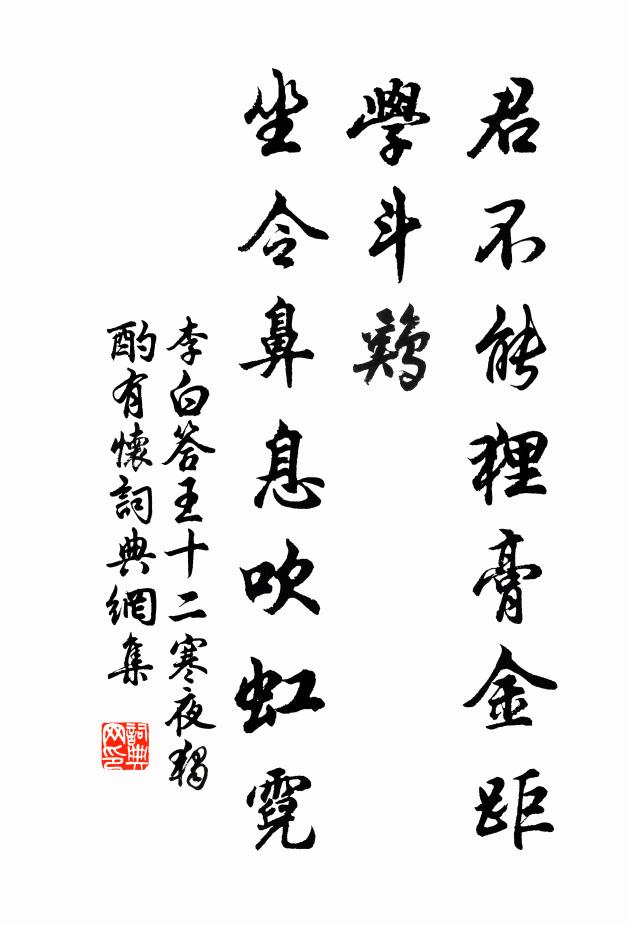 君不能狸膏金距
學斗鷄
坐令鼻息吹虹霓
李白答王十二寒夜獨
酌有懷詞典網集
詞典
网印